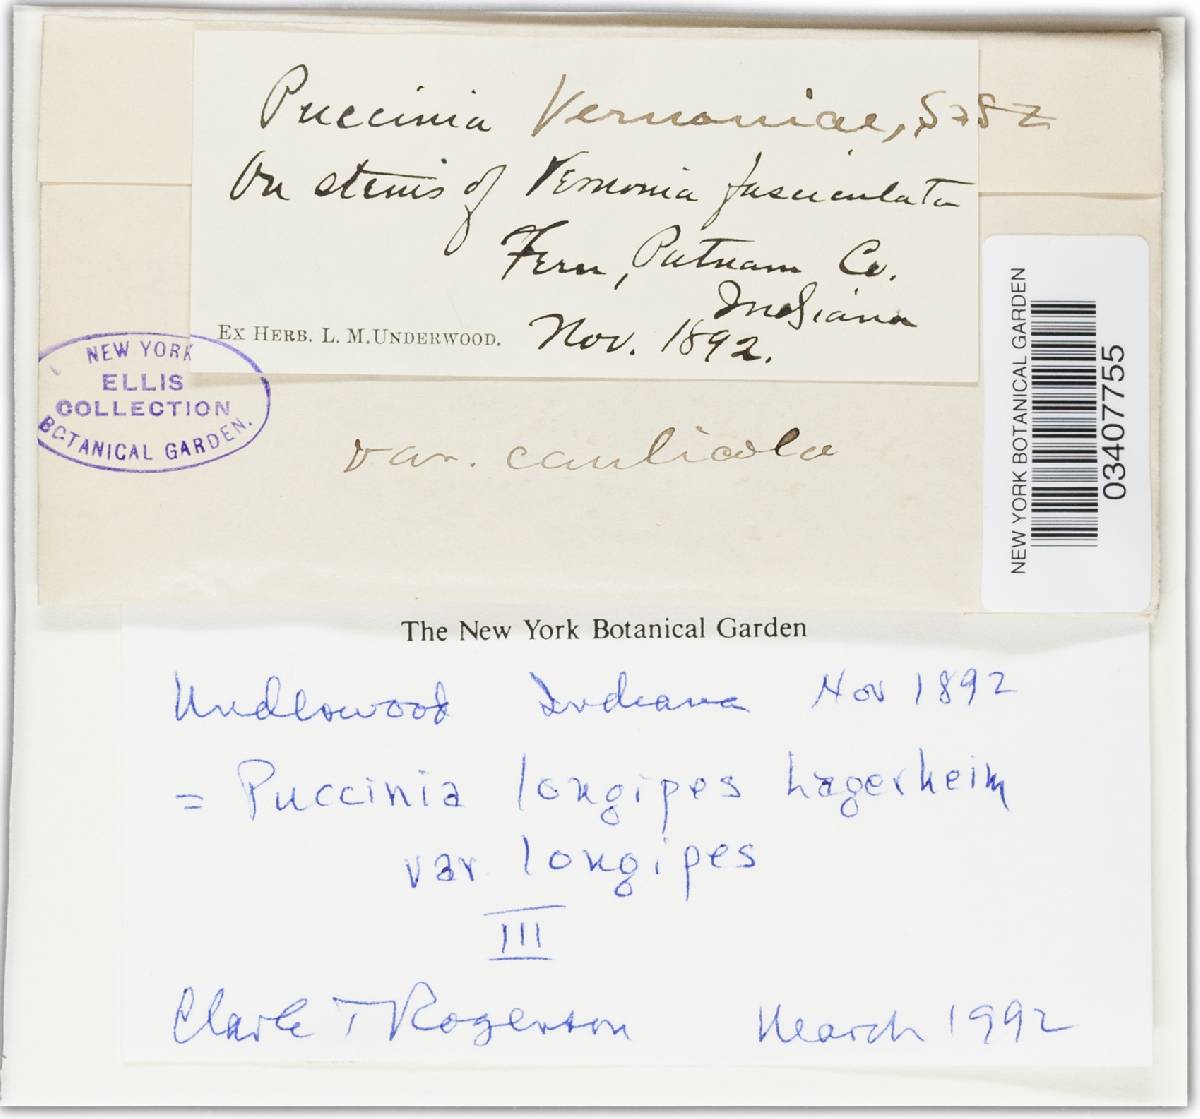 Puccinia Vernoniae, Schz
On stems of Vernonia fasciculata
Fern, Putnam Co.
Indiana
Ex Herb. L. M. Underwood. Nov. 1892.
NEW YORK
ELLIS
COLLECTION
BOTANICAL GARDEN.
var. caulicola
NEW YORK BOTANICAL GARDEN
03407755
The New York Botanical Garden
Underwood Indiana Nov 1892
= Puccinia longipes Lagerheim
var longipes
III
Clark T Rogerson March 1992